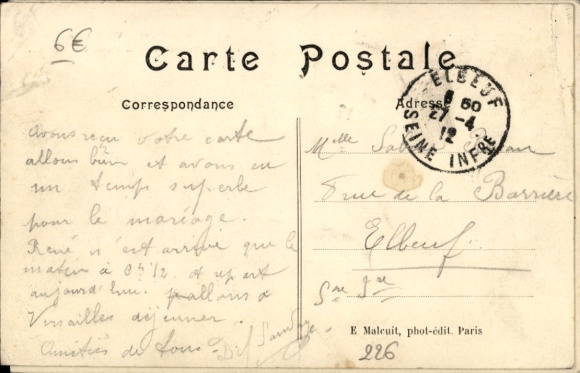 6€
Carte Postale
Correspondance
Adresse
ELBEUF
6 50
27 -4
12
SEINE INFRE
Avons reçu votre carte
allons bien et avons eu
un temps superbe
pour le mariage.
René n'est arrivé que le
matin à et repart
aujourd'hui. allons à
Versailles déjeuner.
Amitiés de tous
Melle
rue de la Barrière
Elbeuf
Sne Inre
E Malcuit, phot-édit. Paris
226